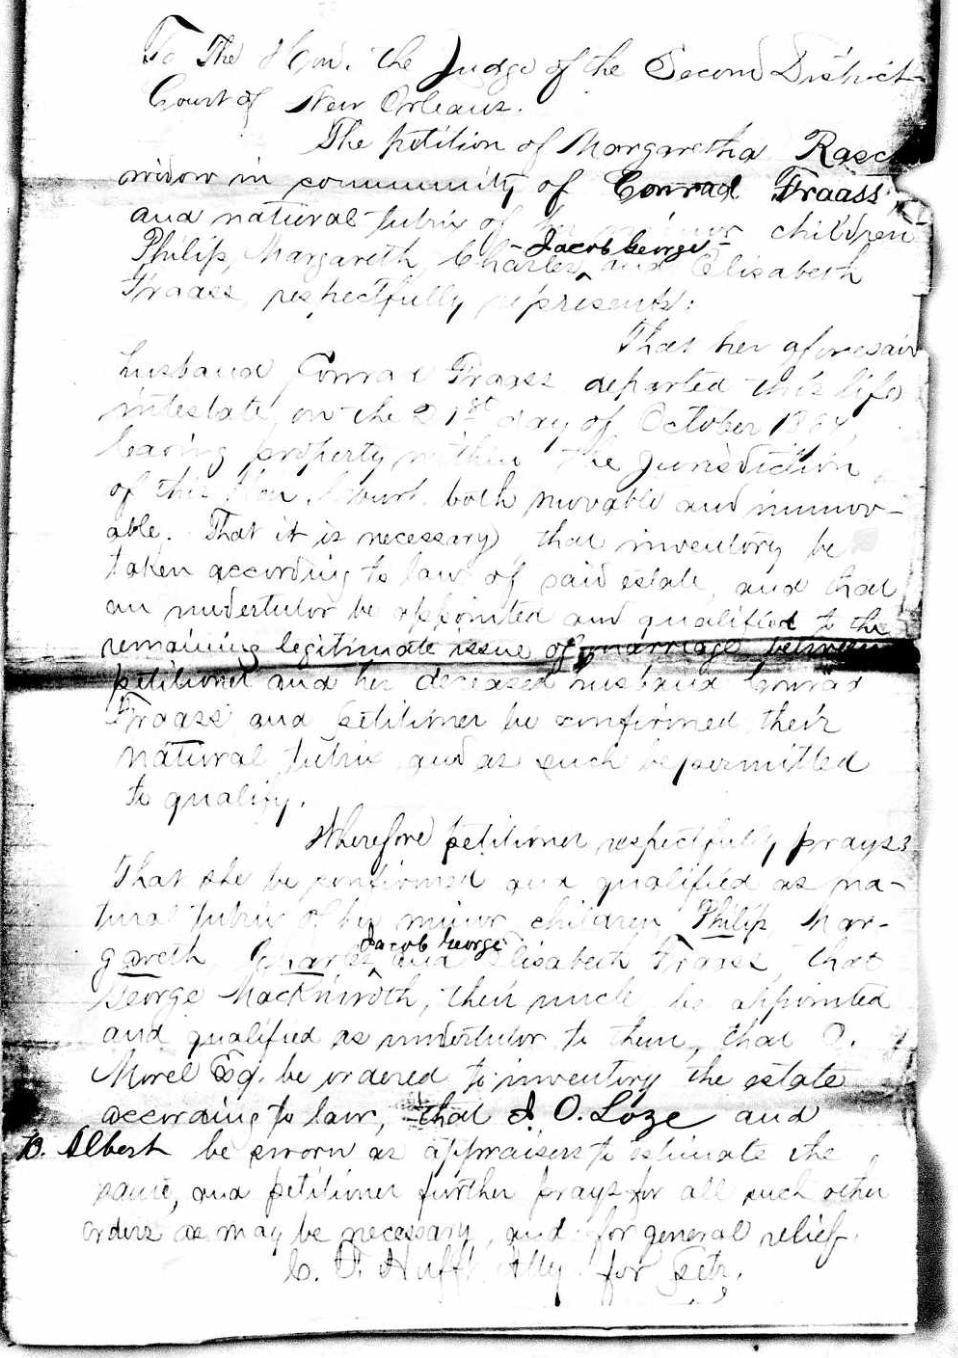 To The Hon. the Judge of the Second District
Court of New Orleans.
The petition of Margaretha Rasc
widow in community of Conrad Fraass
and natural tutrix of minor children
Philip, Margareth, Charles, - Jacob George - and Elisabeth
Fraass, respectfully represents:
That her aforesaid
husband Conrad Fraass departed this life
intestate, on the 21st day of October
leaving property within the Jurisdiction
of this Hon. Court both movable and immov-
able. That it is necessary that inventory be
taken according to law of said estate, and that
an undertutor be appointed and qualified to the
remaining legitimate issue of marriage between
petitioner and her deceased husband Conrad
Fraass and petitioner be confirmed their
natural tutrix and as such be permitted
to qualify.
Wherefore petitioner respectfully prays
That she be confirmed and qualified as na-
tural tutrix of her minor children Philip, Mar-
gareth Charles Jacob George and Elisabeth Fraass, that
George MacKniroth, their uncle, be appointed
and qualified as undertutor to them, that O.
Morel Esq. be ordered to inventory the estate
according to law, that J. O. Loze and
B. Albert be sworn as appraisers to estimate the
same, and petitioner further prays for all such other
orders as may be necessary, and for general relief.
C. T. Huff Atty. for Petr.